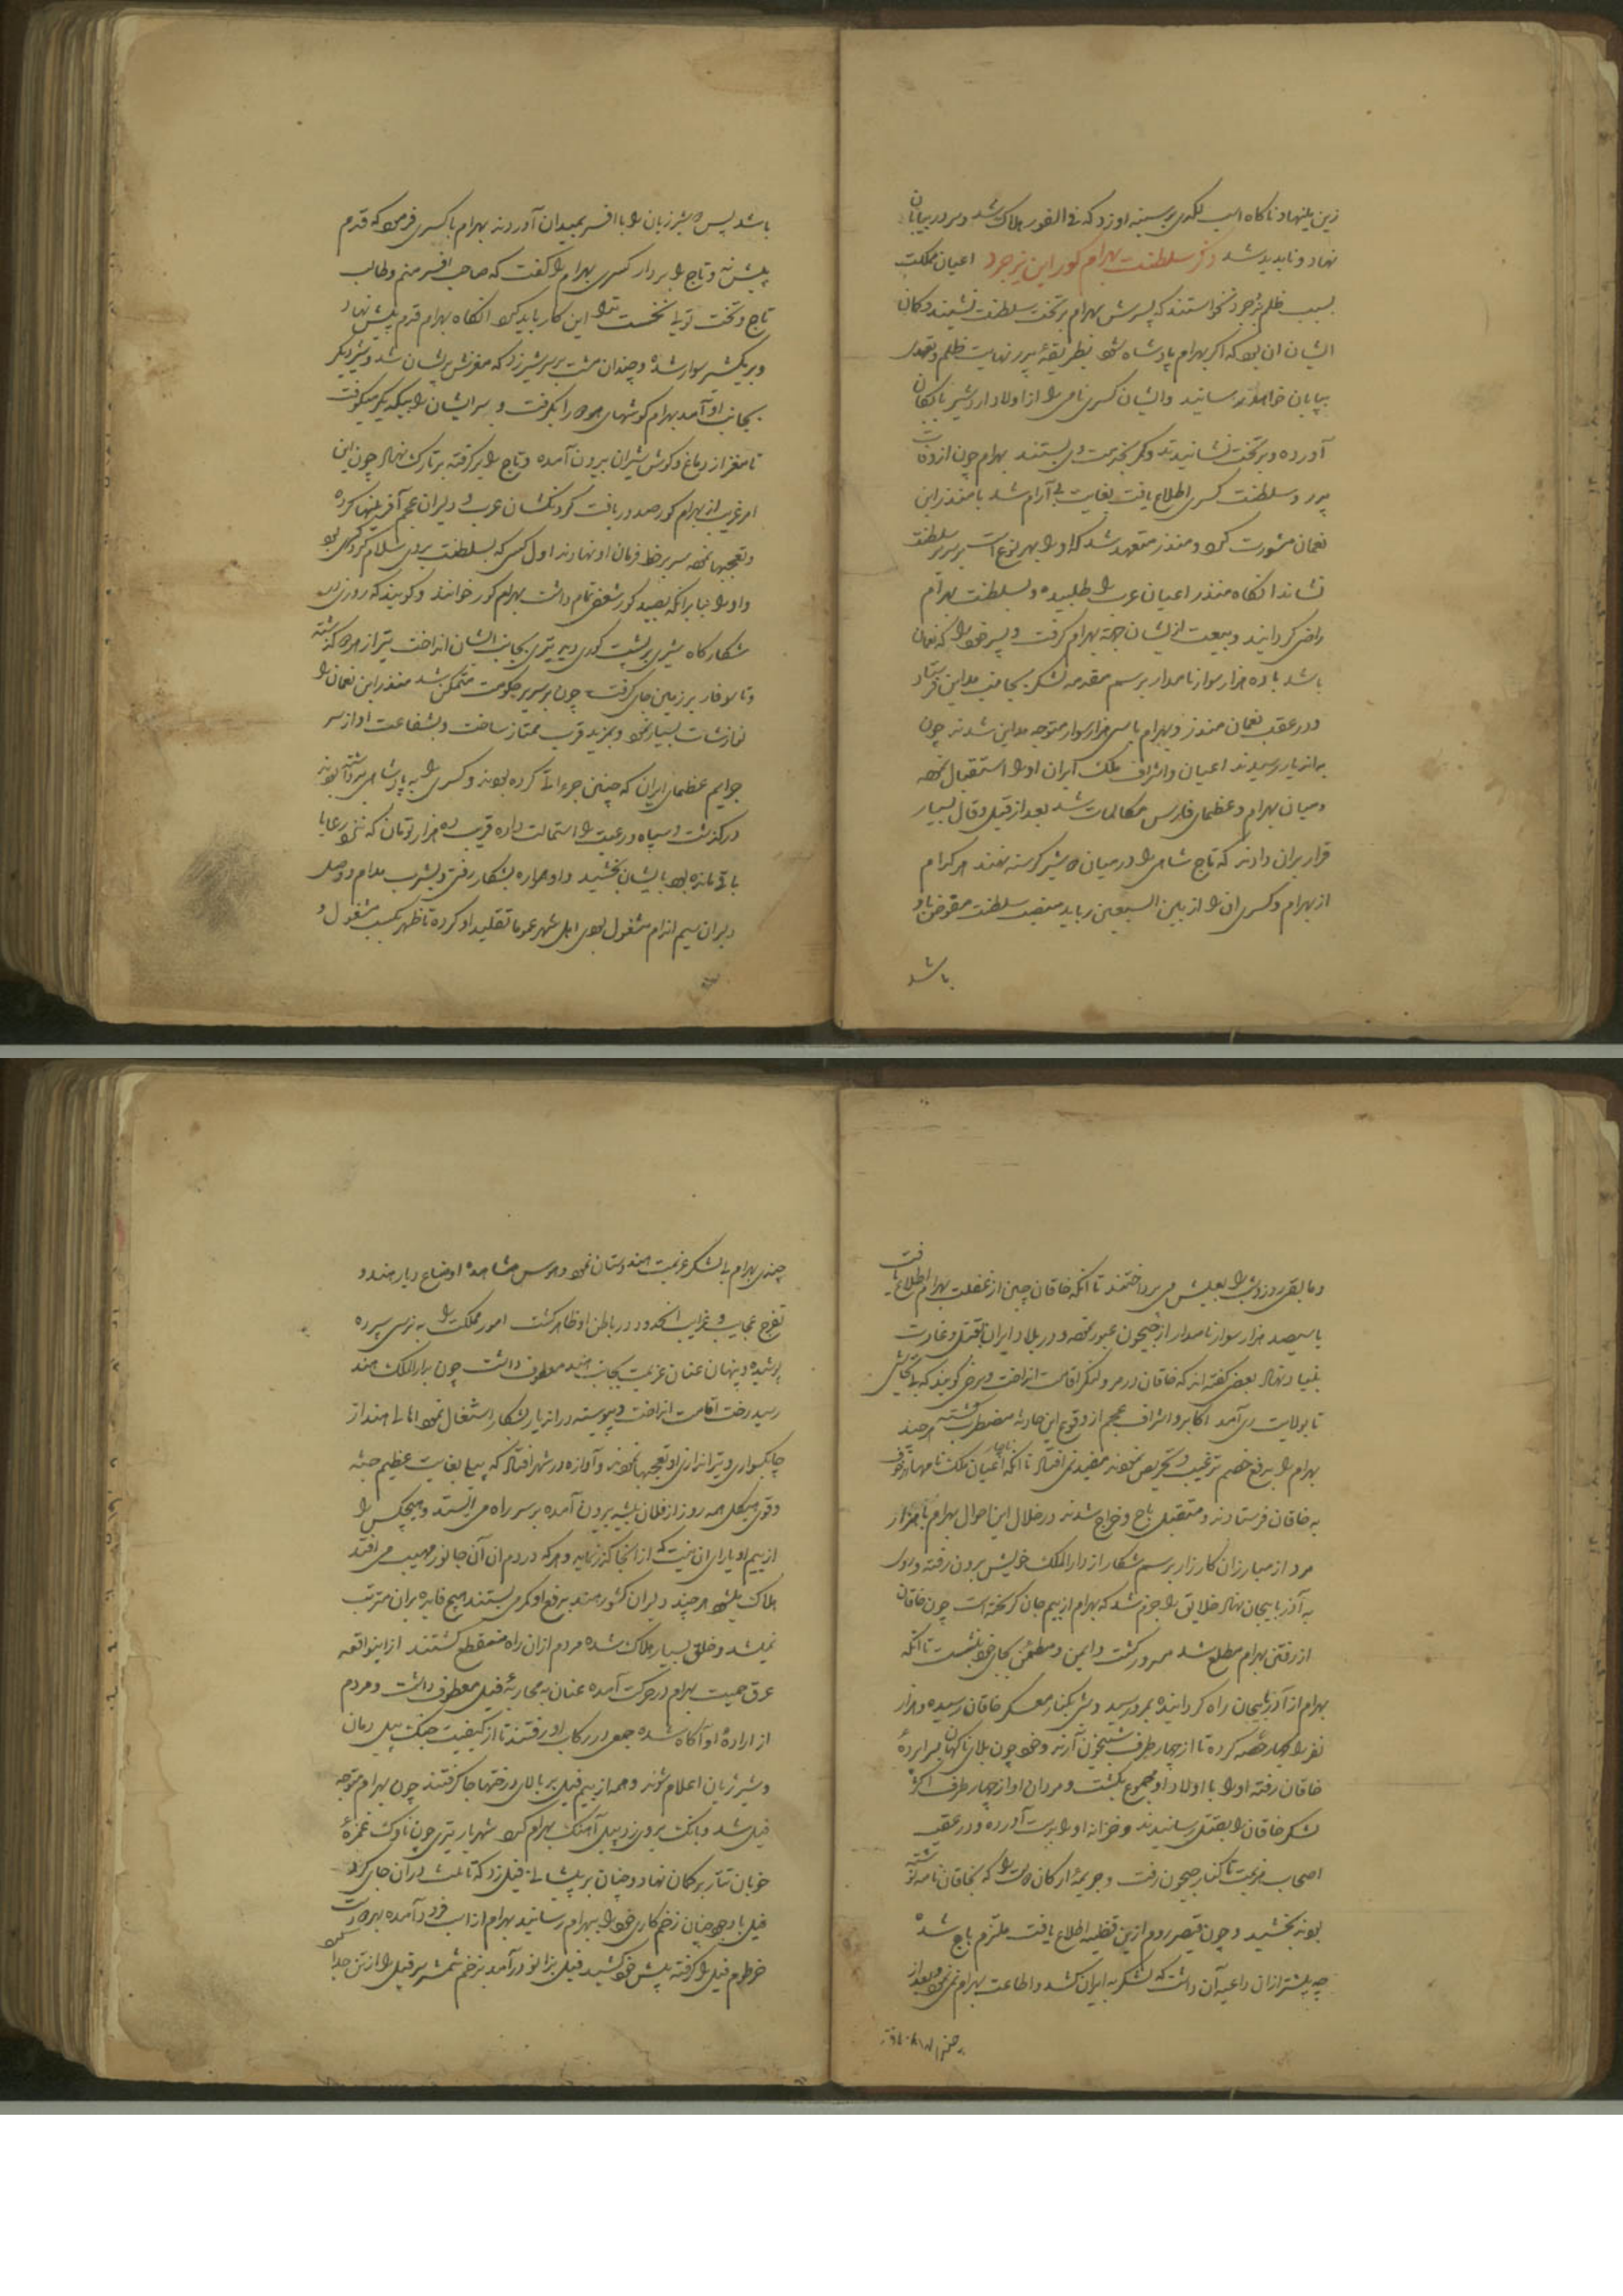 زین بنهاد ناکاه اسب لکدی بر سینه او زد که فی الفور هلاک شد و سر در بیابان
نهاد و ناپدید شد ذکر سلطنت بهرام کور ابن یزدجرد اعیان مملکت
بسبب ظلم یزدجرد نخواستند که پسرش بهرام بر تخت سلطنت نشیند و کمان
ایشان ان بود که اکر بهرام پادشاه شود بطریقهٔ پدر نهایت ظلم و تعدی
بپایان خواهد رسانید و ایشان کسری نامی را از اولاد اردشیر بابکان
آورده و بر تخت نشانیدند و کمر بخدمت وی بستند بهرام چون از وفات
پدر و سلطنت کسری اطلاع یافت بغایت بی آرام شد با منذر ابن
نعمان مشورت کرد و منذر متعهد شد که او را بهر نوع است بر سریر سلطنت
نشاند انکاه منذر اعیان عرب را طلبیده و بسلطنت بهرام
راضی کردانید و بیعت از ایشان جهة بهرام کرفت و پسر خود را که نعمان
باشد با ده هزار سوار نامدار برسم مقدمه لشکر بجانب مداین فرستاد
و در عقب نعمان منذر و بهرام با سی هزار سوار متوجه مداین شدند چون
به ان دیار رسیدند اعیان و اشراف ملک ایران او را استقبال نموده
و میان بهرام و عظمای فارس مکالمات شد بعد از قیل و قال بسیار
قرار بران دادند که تاج شاهی را در میان دو شیر کرسنه نهند هر کدام
از بهرام و کسری ان را از بین السبعین رباید منصب سلطنت مفوض باو
باشد
باشد پس دو شیر ژیان را با افسر بمیدان آوردند بهرام با کسری فرمود که قدم
پیش نه و تاج را بردار کسری بهرام را کفت که صاحب افسر منم و طالب
تاج و تخت تویی نخست ترا این کار باید کرد انکاه بهرام قدم پیش نهاد
و بر یک شیر سوار شد و چندان مشت بر سر شیر زد که مغزش پریشان شد و شیر دیکر
بجانب او آمد بهرام کوشهای هر دو را بکرفت و سر ایشان را بیکدیکر میکوفت
تا مغز از دماغ و کوش شیران بیرون آمده و تاج را برکرفته بر تارک نهاد چون این
امر غریب از بهرام کور صدور یافت کردنکشان عرب و دلیران عجم آفرینها کرده
و تعجبها نموده سر بر خط فرمان او نهادند اول کسی که بسلطنت بروی سلام کرد کسری بود
و او را بنا برانکه بصید کور شعف تمام داشت بهرام کور خوانند و کویند که روزی در
شکارکاه شیری بر پشت کوری دید تیری بجانب ایشان انداخت تیر از هر دو کذشته
و تا سوفار بر زمین جای کرفت چون بر سریر حکومت متمکن شد منذر ابن نعمان را
نوازشات بسیار نمود و بمزید قرب ممتاز ساخت و بشفاعت او از سر
جرایم عظمای ایران که چنین جرءات کرده بودند و کسری را به پادشاهی برداشته بودند
درکذشت و سپاه و رعیت را استمالت داده قریب ده هزار تومان که نزد رعایا
باقی مانده بود بایشان بخشید و او همواره بشکار رفتی و بشرب مدام و وصل
دلبران سیم اندام مشغول بودی اهل شهر عموما تقلید او کرده تا ظهر بکسب مشغول و
و ما بقی روز و شب را بعیش می پرداختند تا انکه خاقان چین از غفلت بهرام اطلاع یافت
با سیصد هزار سوار نامدار از جیحون عبور نموده و در بلاد ایران قتل و غارت
بنیاد نهاد بعضی کفته اند که خاقان در مرو لنکر اقامت انداخت و برخی کویند که
تا بولایت ری آمد اکابر و اشراف عجم از وقوع این حادثه مضطرب کشته هر چند
بهرام را بدفع خصم ترغیب و تحریص نمودند مفید نمی افتاد تا انکه ناچار اعیان ملک نامها
به خاقان فرستادند و متقبل باج و خراج شدند در خلال این احوال بهرام با هزار
مرد از مبارزان کارزار برسم شکار از دارالملک خویش بیرون رفته و روی
به آذربایجان نهاد خلایق را جزم شد که بهرام از بیم جان کریخته است چون خاقان
از رفتن بهرام مطلع شد مسرور کشت و ایمن و مطمئن بجای خود بنشست تا انکه
بهرام از آذربایجان راه کردانیده بمرو رسید و شبی بکنار معسکر خاقان رسیده و هزار
نفر را چهار حصه کرده تا از چهار طرف شبیخون آرند و خود چون بلای ناکهان بسراپردهٔ
خاقان رفته او را با اولاد او مجموع بکشت و مردان او از چهار طرف اکثر
لشکر خاقان را بقتل رسانیدند و خزانه او را بدست آورده و در عقب
اصحاب هزیمت تا کنار جیحون رفت و جریمهٔ ارکان دولت را که بخاقان نامه نوشته
بودند بخشید و چون قیصر روم ازین قضیه اطلاع یافت ملتزم باج شده
چه پیشتر ازان داعیه آن داشت که لشکر به ایران کشد و اطاعت بهرام نمی نمود و بعد از
چندی بهرام بی لشکر عزیمت هندوستان نمود و هوس مشاهدهٔ اوضاع دیار هند و
تفرج عجایب و غرایب انحدود در باطن او ظاهر کشت امور مملکت را به نرسی سپرده
پوشیده و پنهان عنان عزیمت بجانب هند معطوف داشت چون بدارالملک هند
رسید رخت اقامت انداخت و پیوسته در اندیار بشکار اشتغال نمود اهالی هند از
چابکسواری و تیراندازی او تعجبها نمودند و آوازه در شهر افتاد که پیلی بغایت عظیم جثه
و قوی هیکل همه روز از فلان بیشه بیرون آمده بر سر راه می ایستد و هیچکس را
از بیم او یارای ان نیست که از انجا کذر نماید و هر که در دم ان آن جانور مهیب می افتد
هلاک میشود هر چند دلیران کشور هند بدفع او کمر می بستند هیچ فایده بران مترتب
نمیشد و خلق بسیار هلاک شده مردم ازان راه منقطع کشتند ازینواقعه
عرق حمیت بهرام در حرکت آمده عنان به محاربهٔ فیل معطوف داشت و مردم
از ارادهٔ او آکاه شده جمعی در رکاب او رفتند تا از کیفیت جنک پیل دمان
و شیر ژیان اعلام شوند و همه از بیم فیل بر بالای درختها جا کرفتند چون بهرام متوجه
فیل شد و بانک بروی زد پیل آهنک بهرام کرد شهریار تیری چون ناوک غمزهٔ
خوبان تتار بر کمان نهاد و چنان بر پیشانی فیل زد که تا شست دران جای کرد
فیل با وجود چنان زخم کاری خود را به بهرام رسانید بهرام از اسب فرود آمده بهر دو دست
خرطوم فیل را کرفته پیش خود کشید فیل بزانو درآمد بزخم شمشیر سر فیل را از تن جدا کرد